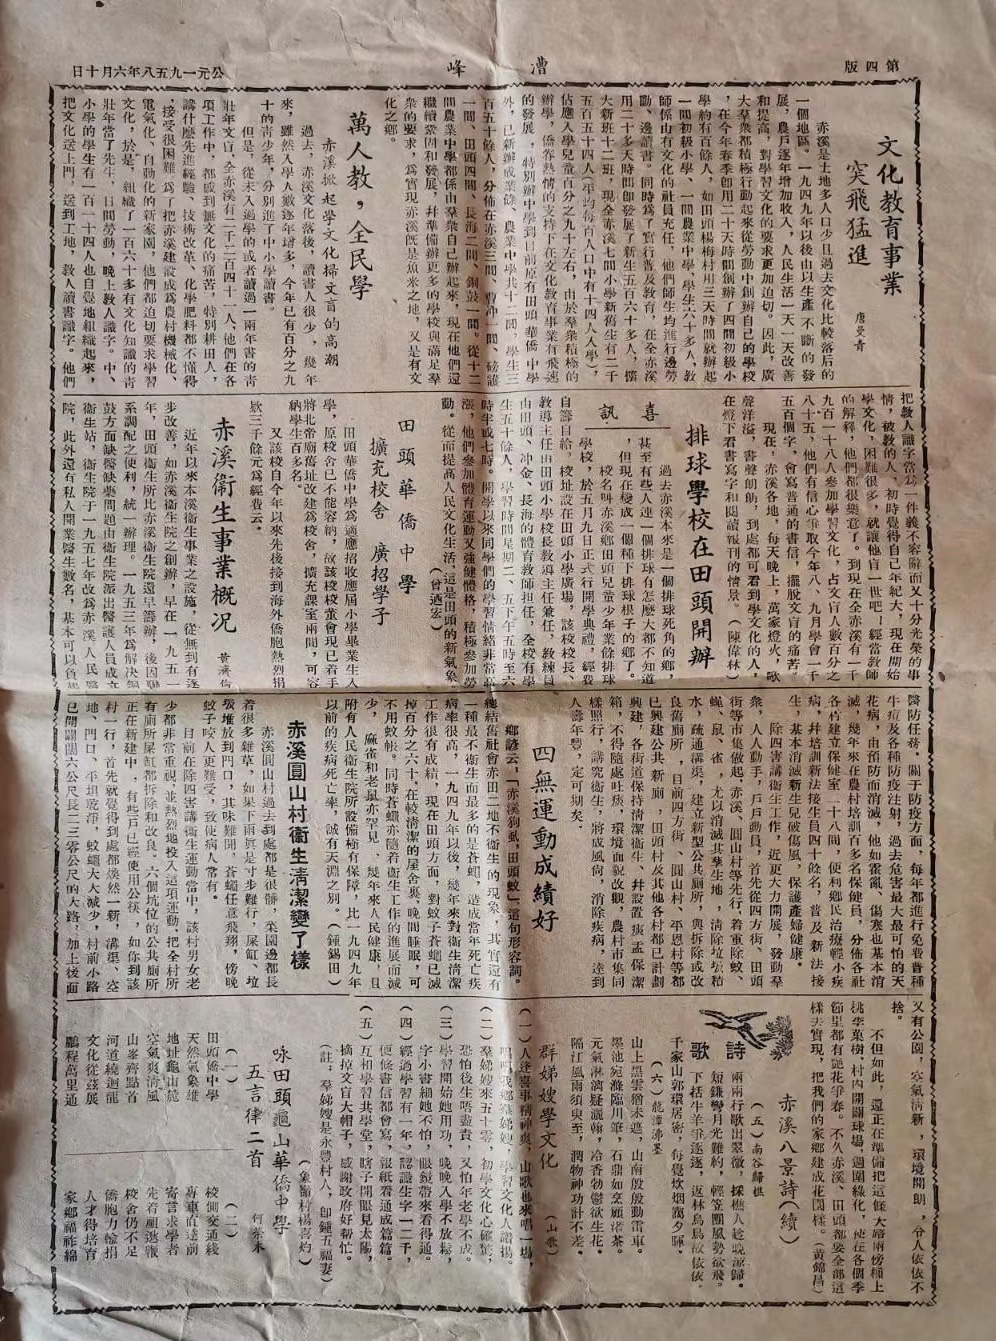 第四版
漕峰
公元一九五八年六月十日
文化教育事業
突飛猛進
唐曼青
赤溪是土地多人口少且過去文化比較落後的
一個地區。一九四九年以後由以生產不斷的發
展，農戶逐年增加收人，人民生活一天一天改善
和提高，對學習文化的要求更加迫切。因此，廣
大羣衆都積極行動起來從勞動中創辦自已的學校
，在今年春季卽用二十天時間創辦了四間初級小
學約有百餘人，如田頭楊梅村用三天時間就辦起
一間初級小學、一間農業中學，學生六十多人，教
師係山有文化的社員充任，他們師生均進行邊勞
動、邊讀書。同時爲了實行普及敎育，在全赤溪
用二十多天時間卽發展了新生五百六十多人，擴
大新班十二班，現全赤溪七間小學新舊生有二千
五百五十四人（平均每百人口中有十四人人學），
佔應人學兒童百分之九十左右，由於羣衆積極的
辦學，僑眷熱情的支持下在文化敎育事業有飛速
的發展，特別辦中學到目前原有田頭華僑中學
外，已新辦成業餘、農業中學共十二間，學生三
百五十餘人，分佈在赤溪三間、曹冲一間、磅礴
一間、田頭四間、長海二間、銅鼓一間。從十二
間農業中學都係由羣衆自己辦起來，現在他們還
繼續鞏固和發展，幷準備辦更多的學校與滿足羣
衆的要求，爲實現赤溪旣是魚米之地，又是有文
化之鄉。
萬人教，全民學
赤溪掀起學文化掃文盲的高潮
過去，赤溪文化落後，讀書人很少，幾年
來，雖然入學人數逐年增多，今年已有百分之九
十的靑少年，分別進了中小學讀書。
但是，從未入過學的或者讀過一兩年書的靑
壯年文盲，全赤溪有二千二百四十一人，他們在各
項工作中，都感到無文化的痛苦，特別耕田人，
講什麽先進經驗、技術改革、化學肥料都不懂得
，接受很困難，爲了把赤溪建設成爲農村機械化、
電氣化、自動化的新家園，他們都迫切要求學習
文化，於是，組織了一百六十多有文化知識的靑
壯年當了先生，日間勞動，晚上敎人識字。中、
小學的學生有一百一十四人也自覺地組織起來，
把文化送上門，送到工地，敎人讀書識字。他們
把敎人識字當爲一件義不容辭而又十分光榮的事
情，被敎的人，初時覺得自己年紀大，現在開始
學文化，困難很多，就讓他盲一世吧！經當敎師
的解釋，他們都很樂意了。到現在全赤溪有一千
九百一十八人參加學習文化，占文盲人數百分之
八十五，他們有信心爭取今年八、九月學會一千
五百個字，會寫普通的書信，擺脫文盲的痛苦。
現在，赤溪各地，每天晚上，萬家燈火，歌
聲洋溢，書聲朗朗，到處都可看到學文化的人，
在燈下看書寫字和閱讀報刊的情景。（陳偉林）
排球學校在田頭開辦
喜訊
過去赤溪本來是一個排球死角的鄉，
甚至有些人連一個排球有怎麽大都不知道
，但現在變成一個種下排球根子的鄉了。
校名叫赤溪鄉田頭兒童少年業餘排球
學校，於五月九日正式行開學典禮，經費
自籌自給，校址設在田頭小學廣場，該校校長、
敎導主任由田頭小學校長敎導主任兼任，敎練員
由田頭、冲金、長海的體育敎師担任，全校有學
生五十餘人，學習時間星期二、五下午五時至六
時半或七時。開學以來同學們的學習情緒非常高
漲，他們參加體育運動又強健體格，積極參加勞
動。從而提高人民文化生活，這是田頭的新氣象。
（曾迺宏）
田頭華僑中學
擴充校舍　廣招學子
田頭華僑中學爲適應招收應屆小學畢業生入
學，原校舍已不能容納，故該校校董會現已着手
將北帝廟舊址改建爲校舍，擴充課室兩間，可容
納學生百多名。
又該校自今年以來先後接到海外僑胞熱烈捐
欵三千餘元爲經費云。
赤溪衞生事業概況
近年以來本溪衞生事業之設施，從無到有逐
步改善，如赤溪衞生院之創辦，早在一九五一
年，田頭衞生所比赤溪衞生院還早籌辦，後因聯
系調配之使利，統一辦理。一九五三年爲解決銅
鼓方面缺醫缺藥問題由衞生院派出醫護人員成立
衞生站，衞生院于一九五七年改爲赤溪人民醫
院，此外還有私人開業醫生數名，基本可以負担
醫防任務。關于防疫方面，每年都進行免費普種
牛痘及各種防疫注射，過去危害最大最可怕的天
花病，由預防而消滅，他如霍亂、傷寒也基本消
滅，幾年來在農村培訓百多名保健員，分佈各社
各村建立保健室二十八間，便利鄉民治療輕小疾
病，幷培訓新法接生員四十餘名，普及新法接
生，基本消滅新生兒破傷風，保護產婦健康。
除四害講衞生工作，近更大力開展，發動羣
衆，人人動手，戶戶動員，首先從四方街、田頭
街等市集做起，赤溪、圓山村等先行，着重除蚊、
蠅、鼠、雀，尤以消滅其孳生地，清除垃圾積
水，疏通溝渠，建立新型公共廁所，與拆除或改
良舊廁所，目前四方街、圓山村、平恩村等都
已興建公共新廁，田頭村及其他各村都已計劃
興建，各街道保持清潔衞生、幷設置痰盂保潔
箱，不得隨處吐痰，環境面貌改觀，農村市集同
樣照行，講究衞生，將成風尙，消除疾病，達到
人壽年豐，定可期矣。
四無運動成績好
鄉諺云，「赤溪狗虱，田頭蚊」，這句形容詞。
總結舊社會赤田二地不衞生的現象，其實還有
一種最不衞生而最多的是蒼蠅，造成當年死亡疾
病率很高，一九四九年以後，幾年來對衞生清潔
工作很有成績，現在田頭方面，對蚊子蒼蠅已滅
掉百分之六十，在較清潔的屋舍裏，晚間睡眠，可
不用蚊帳。同時蒼蠅亦隨着衞生工作的進展而減
少，麻雀和老鼠亦罕見，幾年來人民健康，且
附有人民衞生院所設備極有保障，比一九四九年
以前的疾病死亡率，誠有天淵之別。（鍾錫田）
赤溪圓山村衞生清潔變了樣
赤溪圓山村過去到處都是很髒，菜園邊都長
着很多雜草，如果下雨眞是寸步難行，屎缸、垃
圾堆放到門口，其味難聞，蒼蠅任意飛翔，傍晚
蚊子咬人更難受，致使病人常有。
目前在除四害講衞生運動當中，該村男女老
少都非常重視，並熱烈地投入這項運動，把全村所
有廁所屎缸都拆除和改良。六個坑位的公共廁所
正在新建中，有些戶已經使用公筷，如你到該
村一行，首先就覺得到處都煥然一新，溝渠、空
地、門口，平坦乾淨，蚊蠅大大減少，村前小路
已開闢闊六公尺長二三零公尺的大路，加上後面
又有公園，空氣清新，環境開朗，令人依依不
捨。
不但如此，還正在準備把這條大路兩傍種上
桃李菓樹，村內開闢球場，週圍綠化，使在各個季
節里都有艷花爭春。不久赤溪、田頭都要全部這
樣去實現，把我們的家鄉建成花園樣。（黃錦昌）
詩歌
赤溪八景詩（續）
（五）南谷歸樵
兩兩行歌出翠微，採樵人趁晚涼歸。
短鎌彎月光難約，輕笠團風勢欲飛。
下括牛羊爭逐逐，返林烏鳥故依依。
千家山郭環居密，每覺炊烟萬夕暉。
（六）龍潭沸墨
山上墨雲猶未遮，山南殷殷動雷車。
墨池宛滌臨川筆，石鼎如烹顧渚茶。
元氣淋漓疑灑翰，冷香勃鬱欲生花。
隔江風雨須臾至，潤物神功計不差。
羣娣嫂學文化（山歌）
（一）人逢喜事精神爽，山歌也來唱一場，
唱唱我鄉羣娣嫂，學習文化人讚揚。
（二）羣娣嫂來五十零，初學文化心確驚，
恐怕後生唔盡責，又怕年老學不成。
（三）學習開始她用功，晚晚入學不放鬆，
字小書細她不怕，眼鏡帶來看得通。
（四）經過學習有一年，認識生字一二千，
便條書信都會寫，報紙看通成篇篇。
（五）互相學習共學堂，瞎子開眼見太陽，
摘掉文盲大帽子，感謝政府好幫忙。
（註：羣娣嫂是永豐村人，卽鍾五福妻）
（象嶺村楊喜灼）
咏田頭龜山華僑中學
五言律二首
（一）
田頭僑中學
天然氣象雄
地址龜山麓
空氣爽清風
山峯齊點首
河道繞迴龍
文化從茲展
鵬程萬里通
（二）
校側交通綫
專車直達前
寄言求學者
先着祖邀鞭
校舍仍不足
僑胞力輸捐
人才得培育
家鄉福祚綿